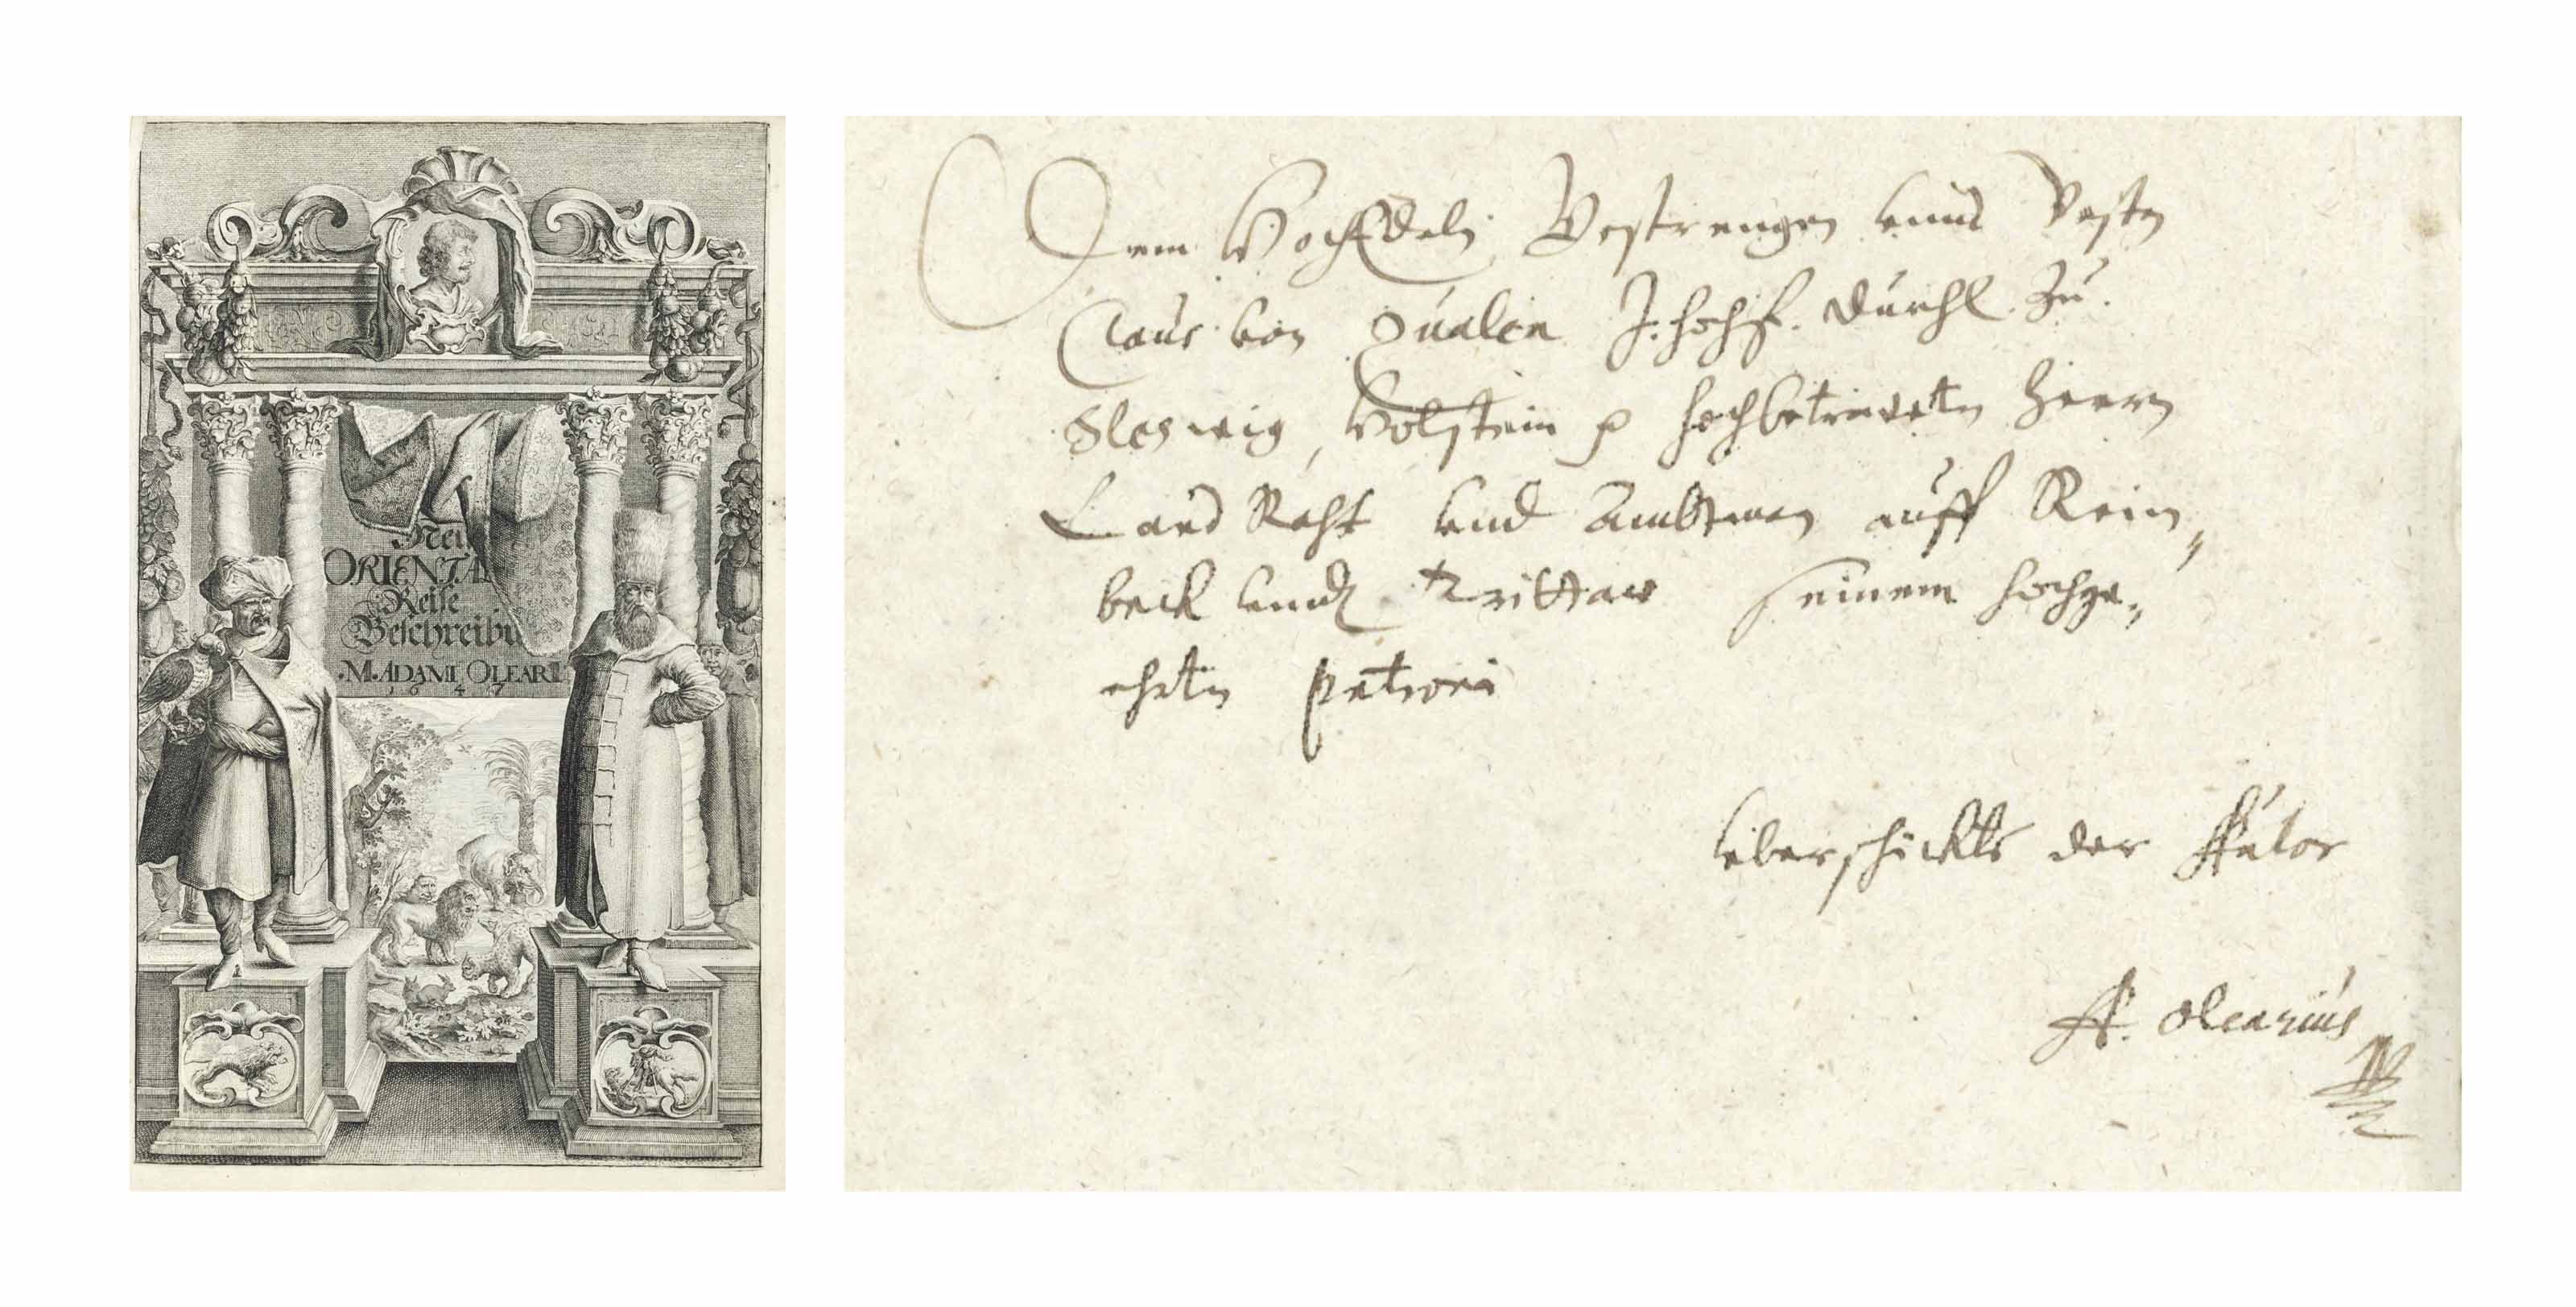 Neu
ORIENTA
Reise
Beschreibu
M. ADAMI OLEARII
1647
Dem HochEdeln Gestrengen unnd Vesten
Claus von Qualen J. hochf. Durchl. Zu
Sleswig, Holstein p hochbetraweten Herrn
Land Raht und Ambtman auff Rein„
beck unnd Trittaw seinem hochge„
ehrten Patroni
uberschickts der Autor
A. Olearius